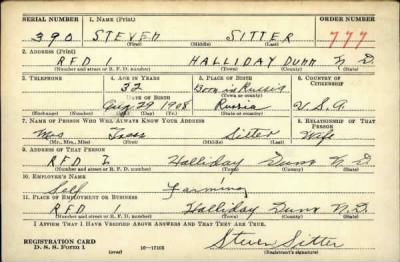 SERIAL NUMBER 1. NAME (Print) ORDER NUMBER
390 STEVEN SITTER 777
(First) (Middle) (Last)
2. ADDRESS (Print)
RFD 1 HALLIDAY DUNN N D.
(Number and street or R. F. D. number) (Town) (County) (State)
3. TELEPHONE 4. AGE IN YEARS 5. PLACE OF BIRTH 6. COUNTRY OF CITIZENSHIP
32 Born in Russia
DATE OF BIRTH (Town or county)
Aug 29 1908 Russia U.S.A.
(Exchange) (Number) (Mo.) (Day) (Yr.) (State or country)
7. NAME OF PERSON WHO WILL ALWAYS KNOW YOUR ADDRESS 8. RELATIONSHIP OF THAT PERSON
Mrs Sitter Wife
(Mr., Mrs., Miss) (First) (Middle) (Last)
9. ADDRESS OF THAT PERSON
RFD 1 Halliday Dunn N.D.
(Number and street or R. F. D. number) (Town) (County) (State)
10. EMPLOYER'S NAME
Self Farming
11. PLACE OF EMPLOYMENT OR BUSINESS
RFD 1 Halliday Dunn N.D.
(Number and street or R. F. D. number) (Town) (County) (State)
I AFFIRM THAT I HAVE VERIFIED ABOVE ANSWERS AND THAT THEY ARE TRUE.
REGISTRATION CARD
D. S. S. Form 1 (over) 16—17105 Steven Sitter
(Registrant's signature)